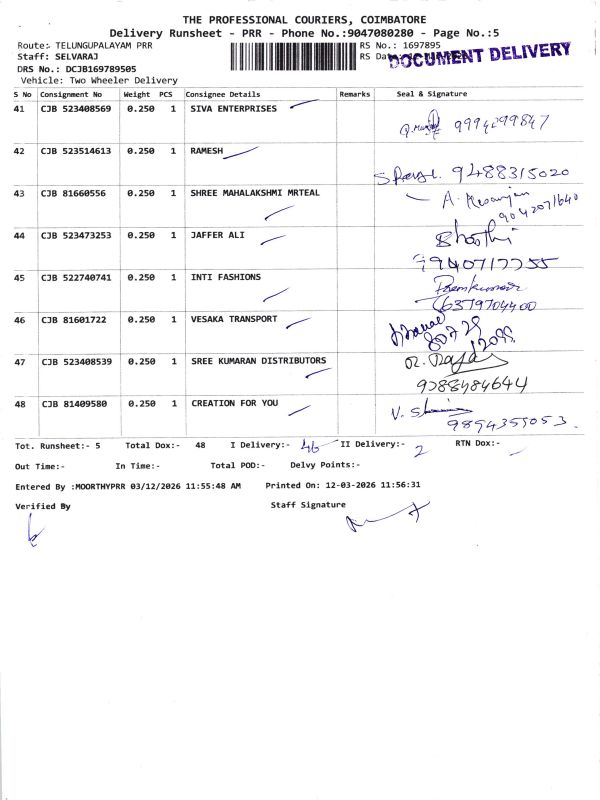 THE PROFESSIONAL COURIERS, COIMBATORE
Delivery Runsheet - PRR - Phone No.:9047080280 - Page No.:5
Route:- TELUNGUPALAYAM PRR
RS No.: 1697895
Staff: SELVARAJ
RS Da
DOCUMENT DELIVERY
DRS No.: DCJB169789505
Vehicle: Two Wheeler Delivery
S No Consignment No Weight PCS Consignee Details Remarks Seal & Signature
41 CJB 523408569 0.250 1 SIVA ENTERPRISES
9994299847
42 CJB 523514613 0.250 1 RAMESH
9488315020
43 CJB 81660556 0.250 1 SHREE MAHALAKSHMI MRTEAL
9042071640
44 CJB 523473253 0.250 1 JAFFER ALI
9940717755
45 CJB 522740741 0.250 1 INTI FASHIONS
Premkumar
6379704400
46 CJB 81601722 0.250 1 VESAKA TRANSPORT
47 CJB 523408539 0.250 1 SREE KUMARAN DISTRIBUTORS
R. Raja
9788484644
48 CJB 81409580 0.250 1 CREATION FOR YOU
9894355053.
Tot. Runsheet:- 5 Total Dox:- 48 I Delivery:- 46 II Delivery:- 2 RTN Dox:-
Out Time:- In Time:- Total POD:- Delvy Points:-
Entered By :MOORTHYPRR 03/12/2026 11:55:48 AM Printed On: 12-03-2026 11:56:31
Verified By Staff Signature